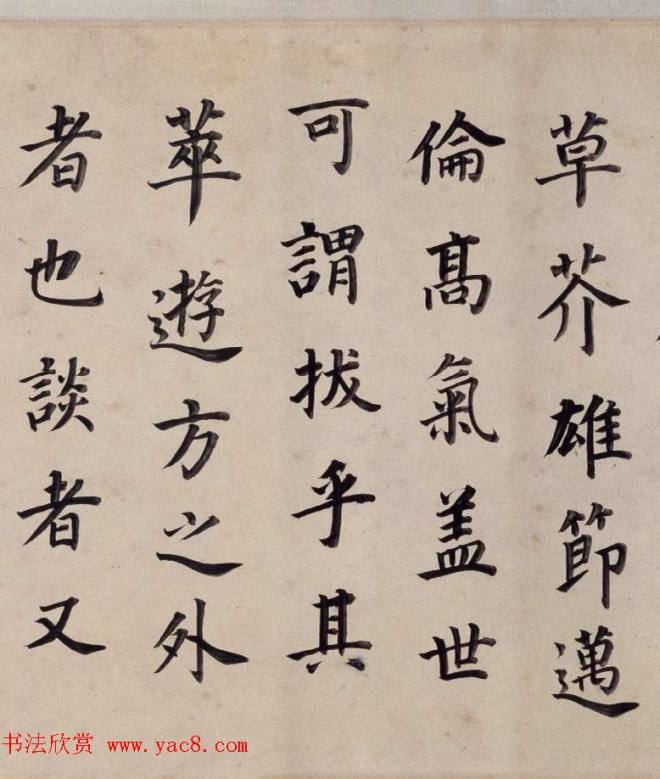 草芥雄節邁
倫髙氣盖世
可謂拔乎其
萃遊方之外
者也談者又
书法欣赏 www.yac8.com